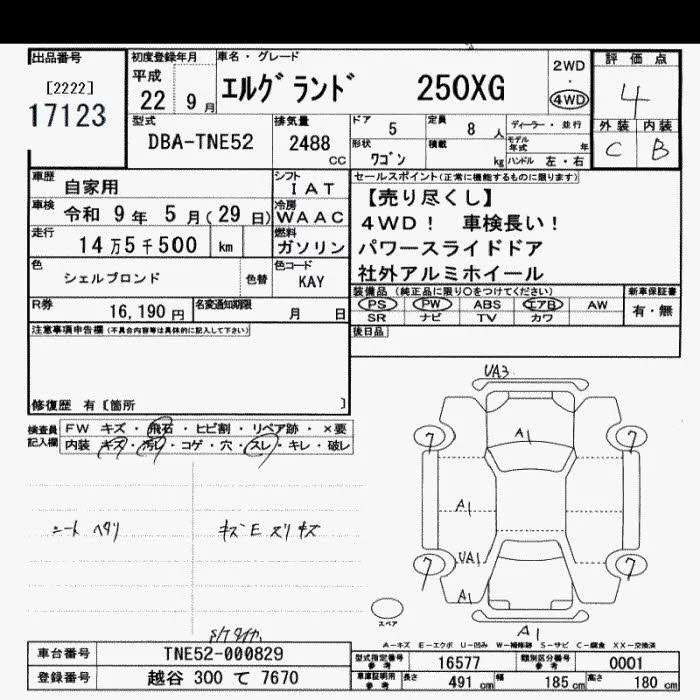 出品番号
[2222]
17123
初度登録年月
平成
22 9月
車名・グレード
エルグランド 250XG
2WD
・
4WD
評価点
4
外装 内装
C B
型式
DBA-TNE52
排気量
2488
CC
ドア
5
定員
8人
形状
ワゴン
積載
kg
ディーラー・並行
モデル年式 年
ハンドル 左・右
車歴
自家用
シフト
IAT
車検
令和 9年 5月(29日)
冷房
WAAC
走行
14万5千500 km
燃料
ガソリン
色
シェルブロンド
色替
色コード
KAY
R券
16,190円
名変通知期限
月 日
セールスポイント(正常に機能するものに限ります)
【売り尽くし】
4WD! 車検長い!
パワースライドドア
社外アルミホイール
装備品(純正品に限り○をつけてください)
新車保証書
PS PW ABS エアB AW
有・無
SR ナビ TV カワ
後日品
注意事項申告欄(不具合内容等は具体的に記入して下さい)
修復歴 有〔箇所 〕
検査員記入欄
FW キズ・飛石・ヒビ割・リペア跡・×要
内装 キズ・汚レ・コゲ・穴・スレ・キレ・破レ
シートヘタリ
キズE スリキズ
S/Tタイヤ
UA3
7
7
A1
A1
UA1
7
7
A1
A1
スペア
A-キズ E-エクボ U-凹み W-補修跡 S-サビ C-腐食 XX-交換済
車台番号
TNE52-000829
登録番号
越谷 300 て 7670
型式指定番号参考
16577
類別区分番号参考
0001
車庫証明用参考
長さ 491 cm
幅 185 cm
高さ 180 cm